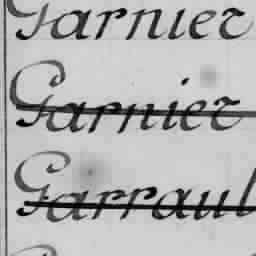 Garnier
Garnier
Garraul